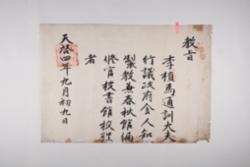 教旨
李植爲通訓大夫
行議政府舍人知
製教兼春秋館編
修官校書館校理
者
天啓四年九月初九日